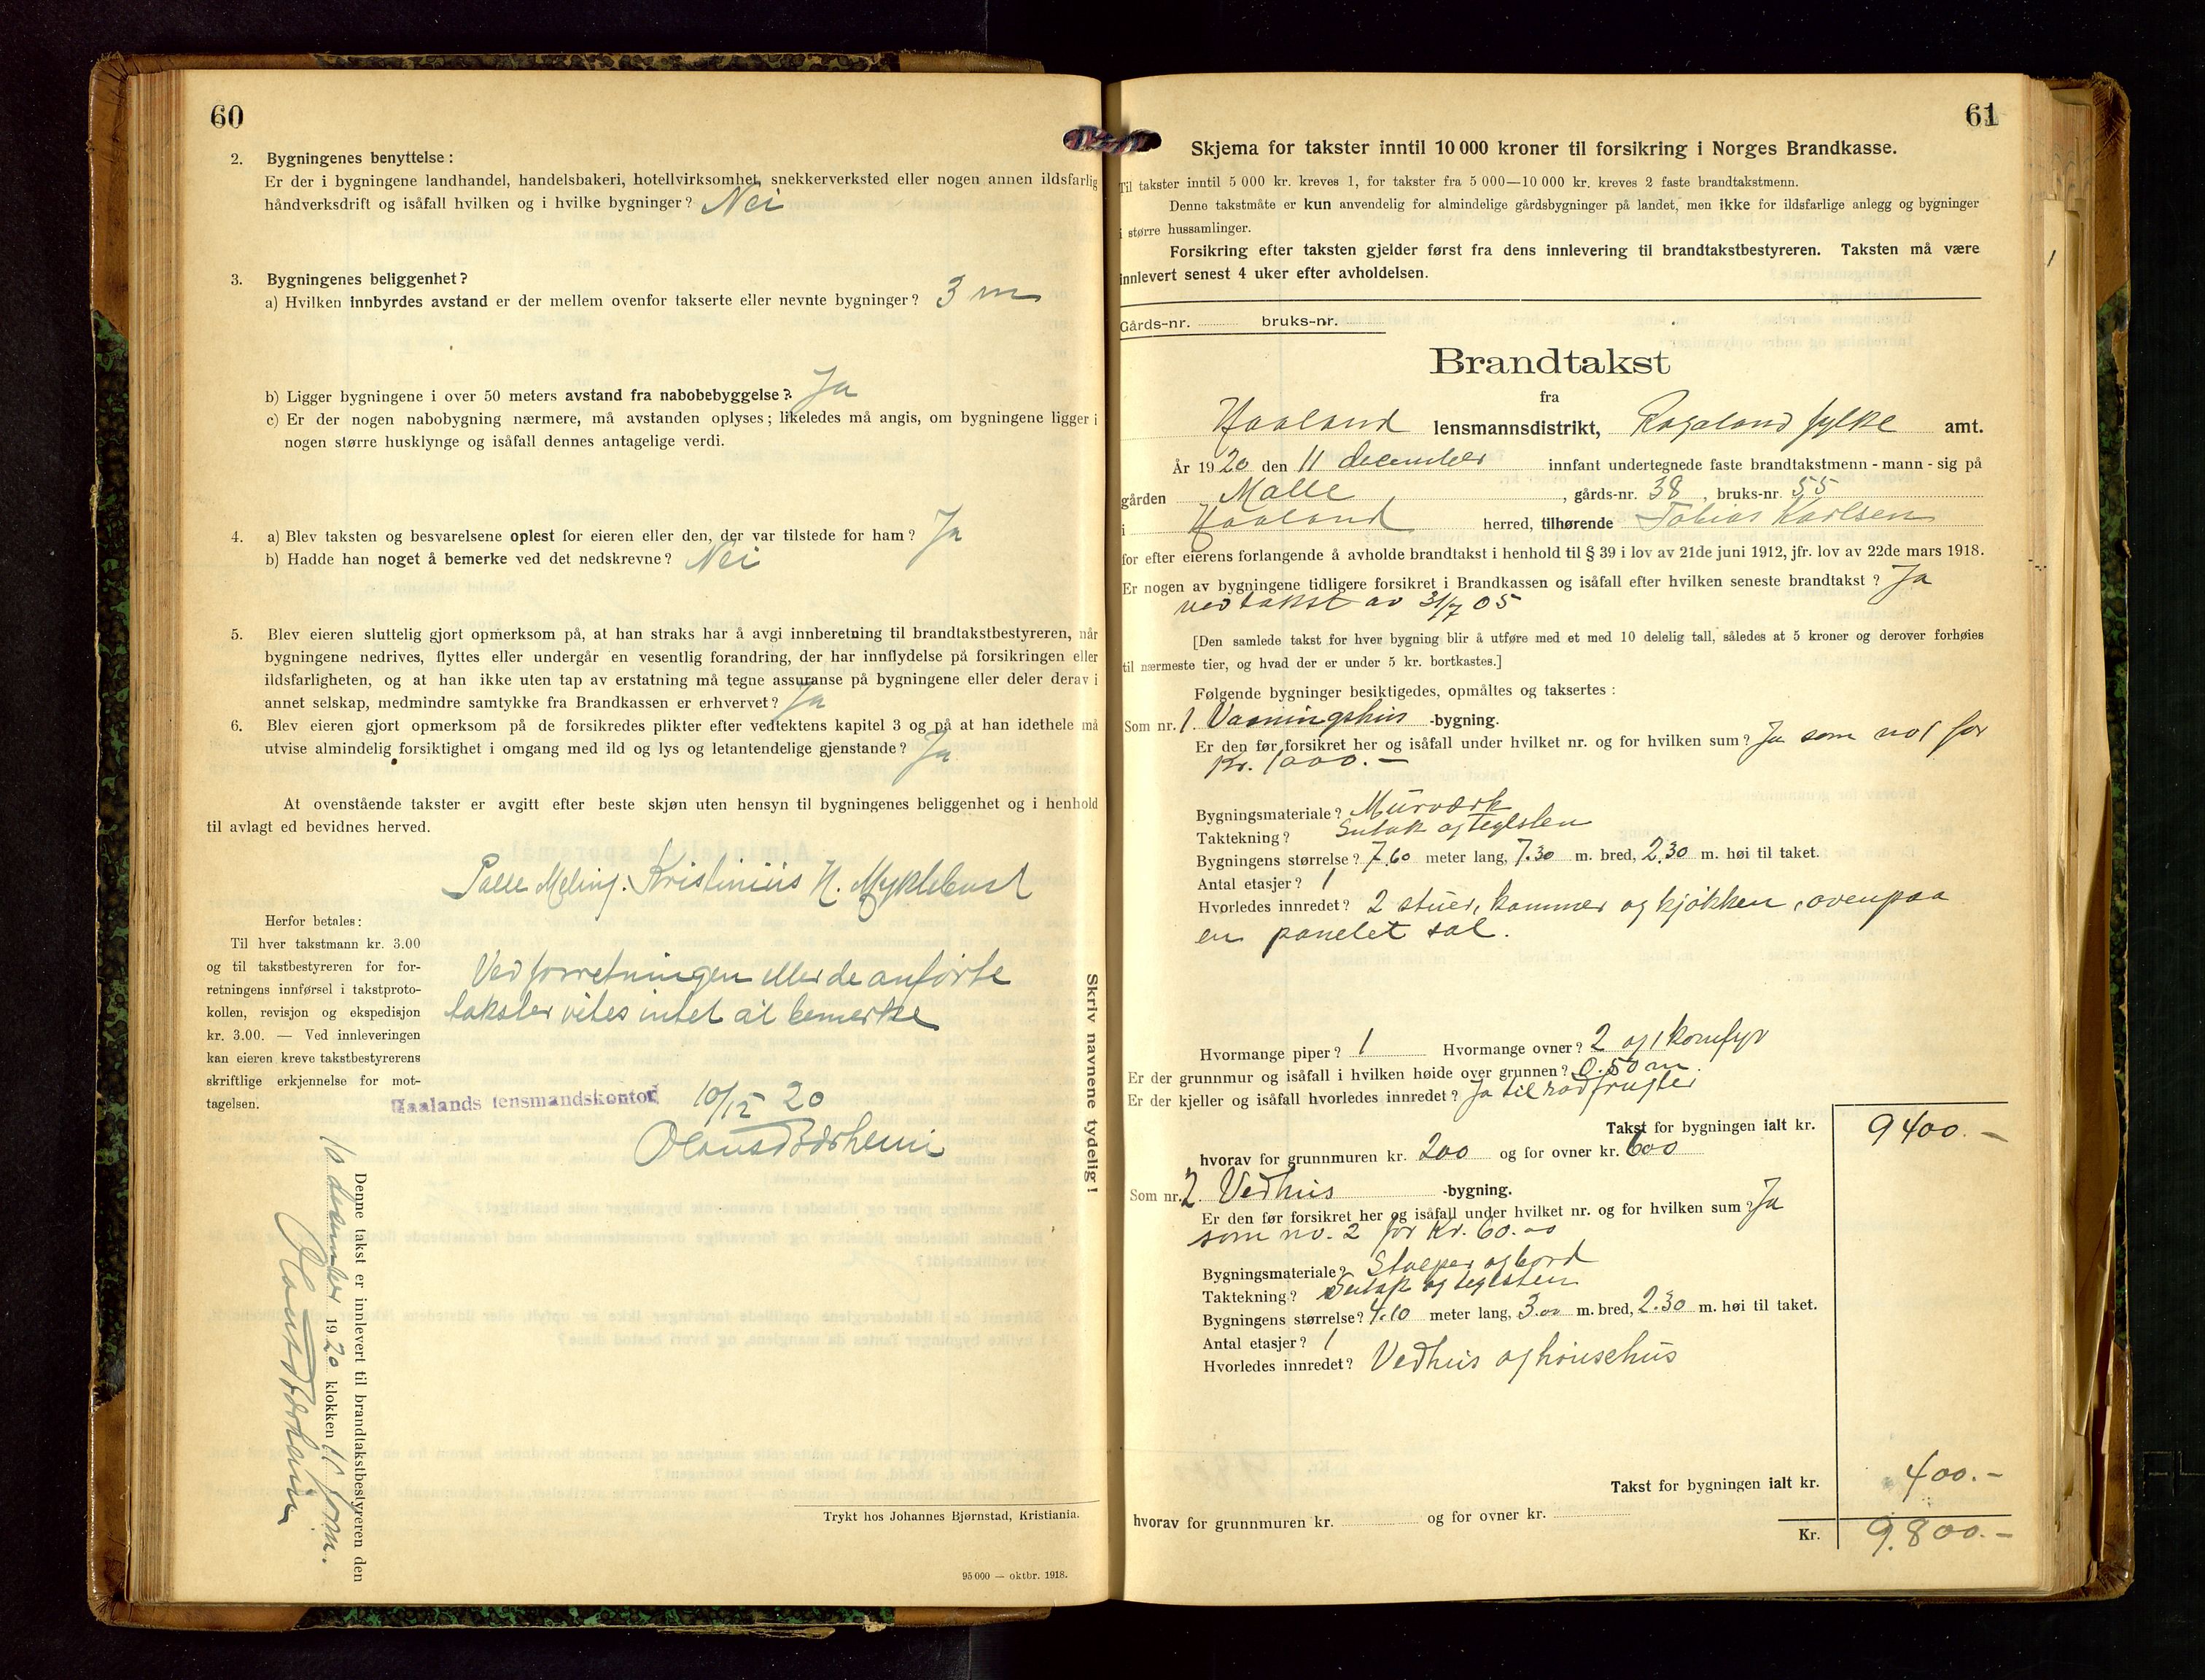 60
2. Bygningenes benyttelse:
Er der i bygningene landhandel, handelsbakeri, hotellvirksomhet, snekkerverksted eller nogen annen ildsfarlig
håndverksdrift og isåfall hvilken og i hvilke bygninger? Nei
3. Bygningenes beliggenhet?
a) Hvilken innbyrdes avstand er der mellem ovenfor takserte eller nevnte bygninger? 3 m
b) Ligger bygningene i over 50 meters avstand fra nabobebyggelse? Ja
c) Er der nogen nabobygning nærmere, må avstanden oplyses; likeledes må angis, om bygningene ligger i
nogen større husklynge og isåfall dennes antagelige verdi.
4. a) Blev taksten og besvarelsene oplest for eieren eller den, der var tilstede for ham? Ja
b) Hadde han noget å bemerke ved det nedskrevne? Nei
5. Blev eieren sluttelig gjort opmerksom på, at han straks har å avgi innberetning til brandtakstbestyreren, når
bygningene nedrives, flyttes eller undergår en vesentlig forandring, der har innflydelse på forsikringen eller
ildsfarligheten, og at han ikke uten tap av erstatning må tegne assuranse på bygningene eller deler derav i
annet selskap, medmindre samtykke fra Brandkassen er erhvervet? Ja
6. Blev eieren gjort opmerksom på de forsikredes plikter efter vedtektens kapitel 3 og på at han idethele må
utvise almindelig forsiktighet i omgang med ild og lys og letantendelige gjenstande? Ja
At ovenstående takster er avgitt efter beste skjøn uten hensyn til bygningenes beliggenhet og i henhold
til avlagt ed bevidnes herved.
Palle Meling. Kristinius N. Myklebust
Herfor betales:
Til hver takstmann kr. 3.00
og til takstbestyreren for for-
retningens innførsel i takstproto-
kollen, revisjon og ekspedisjon
kr. 3.00. — Ved innleveringen
kan eieren kreve takstbestyrerens
skriftlige erkjennelse for mot-
tagelsen.
Ved forretningen eller de anførte
takster vites intet at bemerke
Haalands lensmandskontor 10/12 20
Olaus Bærheim
Skriv navnene tydelig!
Denne takst er innlevert til brandtakstbestyreren den
10 december 1920 klokken 11 form.
Olaus Bærheim
Trykt hos Johannes Bjørnstad, Kristiania.
95 000 — oktbr. 1918.
61
Skjema for takster inntil 10 000 kroner til forsikring i Norges Brandkasse.
Til takster inntil 5 000 kr. kreves 1, for takster fra 5 000—10 000 kr. kreves 2 faste brandtakstmenn.
Denne takstmåte er kun anvendelig for almindelige gårdsbygninger på landet, men ikke for ildsfarlige anlegg og bygninger
i større hussamlinger.
Forsikring efter taksten gjelder først fra dens innlevering til brandtakstbestyreren. Taksten må være
innlevert senest 4 uker efter avholdelsen.
Gårds-nr. bruks-nr.
Brandtakst
fra
Haaland lensmannsdistrikt, Rogaland fylke amt.
År 1920 den 11 december innfant undertegnede faste brandtakstmenn - mann - sig på
gården Malle, gårds-nr. 38, bruks-nr. 55
i Haaland herred, tilhørende Tobias Karlsen
for efter eierens forlangende å avholde brandtakst i henhold til § 39 i lov av 21de juni 1912, jfr. lov av 22de mars 1918.
Er nogen av bygningene tidligere forsikret i Brandkassen og isåfall efter hvilken seneste brandtakst? Ja
ved takst av 31/7 05
[Den samlede takst for hver bygning blir å utføre med et med 10 delelig tall, således at 5 kroner og derover forhøies
til nærmeste tier, og hvad der er under 5 kr. bortkastes.]
Følgende bygninger besiktigedes, opmåltes og taksertes:
Som nr. 1 Vaaningshus -bygning.
Er den før forsikret her og isåfall under hvilket nr. og for hvilken sum? Ja som no 1 for
Kr. 1000.-
Bygningsmateriale? Murværk
Taktekning? Sutak og teglsten
Bygningens størrelse? 7.60 meter lang, 7.30 m. bred, 2.30 m. høi til taket.
Antal etasjer? 1
Hvorledes innredet? 2 stuer, kammer og kjøkken, ovenpaa
en panelet sal.
Hvormange piper? 1 Hvormange ovner? 2 og 1 komfyr
Er der grunnmur og isåfall i hvilken høide over grunnen? 0.50 m.
Er der kjeller og isåfall hvorledes innredet? Ja til rodfrugter
Takst for bygningen ialt kr. 9400.-
hvorav for grunnmuren kr. 200 og for ovner kr. 600
Som nr. 2 Vedhus -bygning.
Er den før forsikret her og isåfall under hvilket nr. og for hvilken sum? Ja
som no. 2 for Kr. 60.00
Bygningsmateriale? Stolper og bord
Taktekning? Sutak og teglsten
Bygningens størrelse? 4.10 meter lang, 3.00 m. bred, 2.30 m. høi til taket.
Antal etasjer? 1
Hvorledes innredet? Vedhus og hønsehus
Takst for bygningen ialt kr. 400.-
hvorav for grunnmuren kr. og for ovner kr.
Kr. 9.800.-